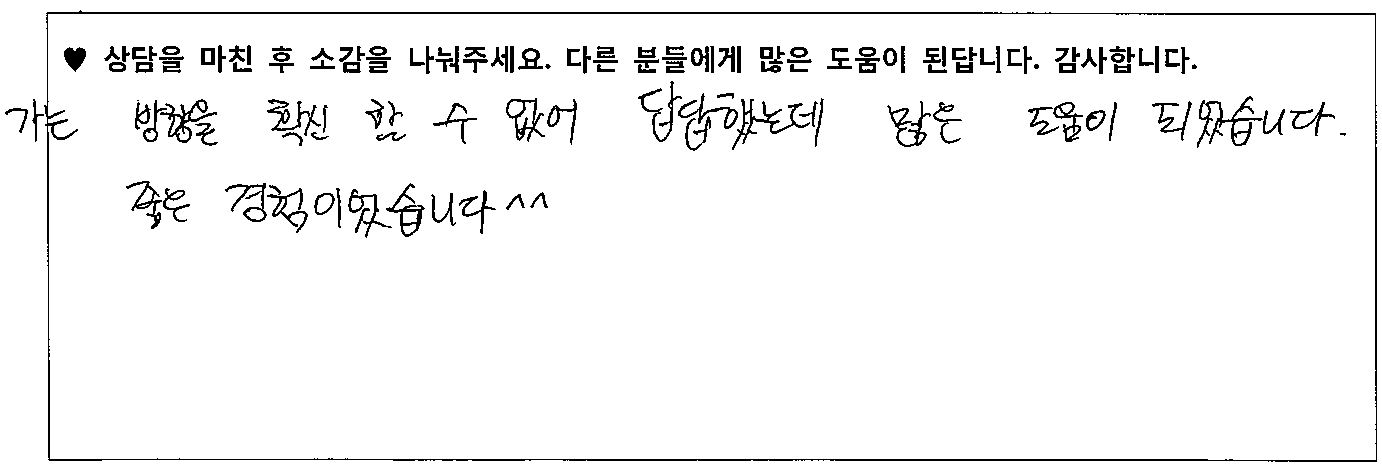 ♥ 상담을 마친 후 소감을 나눠주세요. 다른 분들에게 많은 도움이 된답니다. 감사합니다.
가는 방향을 확신 할 수 없어 답답했는데 많은 도움이 되었습니다.
좋은 경험이었습니다^^